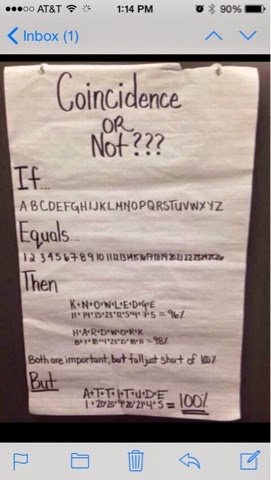 AT&T 1:14 PM 90%
Inbox (1)
Coincidence
OR
Not???
If...
A B C D E F G H I J K L M N O P Q R S T U V W X Y Z
Equals...
1 2 3 4 5 6 7 8 9 10 11 12 13 14 15 16 17 18 19 20 21 22 23 24 25 26
Then
K+N+O+W+L+E+D+G+E
11+14+15+23+12+5+4+7+5 = 96%
H+A+R+D+W+O+R+K
8+1+18+4+23+15+18+11 = 98%
Both are important, but fall just short of 100%
But
A+T+T+I+T+U+D+E
1+20+20+9+20+21+4+5 = 100%